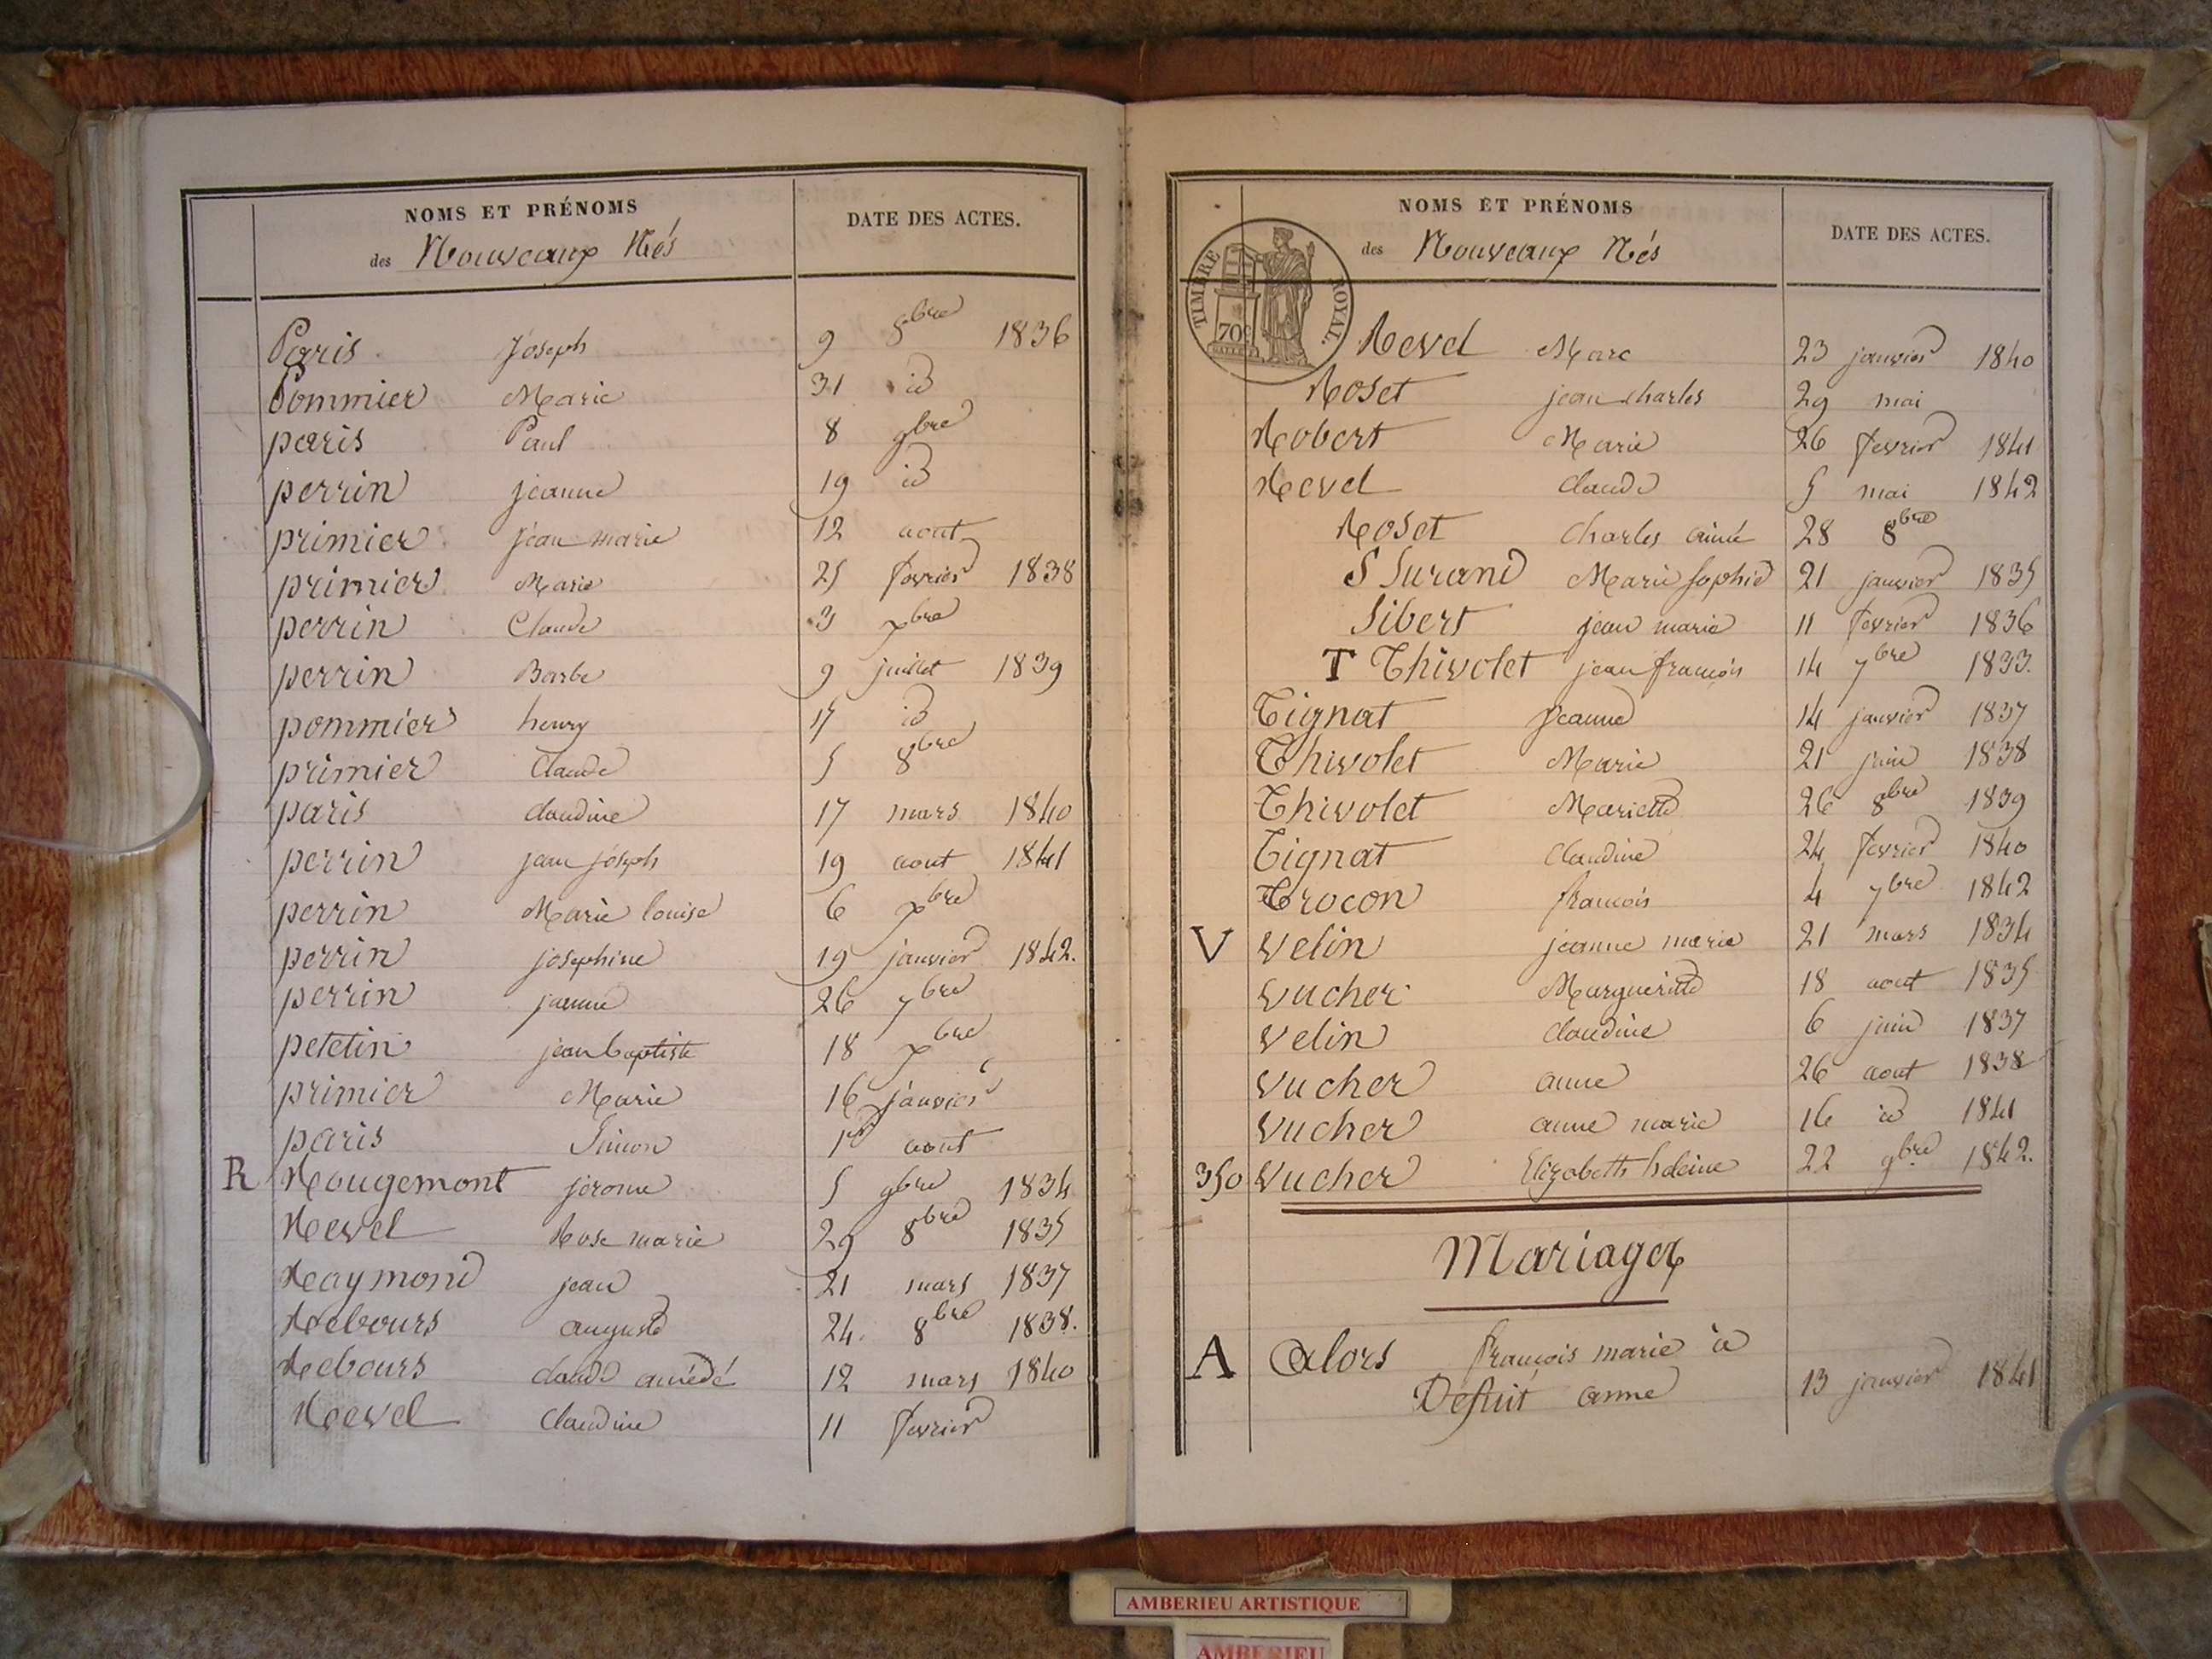 NOMS ET PRÉNOMS
des Nouveaux Nés
DATE DES ACTES.
Paris Joseph 9 8bre 1836
Pommier Marie 31 id
paris Paul 8 9bre
perrin jeanne 19 id
primier jean marie 12 aout
primier Marie 25 fevrier 1838
perrin Claude 3 xbre
perrin Barbe 9 juillet 1839
pommier henry 15 id
primier Claude 5 8bre
paris claudine 17 mars 1840
perrin jean joseph 19 aout 1841
perrin Marie louise 6 xbre
perrin josephine 19 janvier 1842.
perrin jeanne 26 7bre
petetin jean baptiste 18 xbre
primier Marie 16 janvier
paris Simon 1er aout
R Rougemont jérome 5 9bre 1834
Revel Rose marie 29 8bre 1835
Raymond jean 21 mars 1837
Rebours auguste 24 8bre 1838.
Rebours claude amédé 12 mars 1840
Revel Claudine 11 fevrier
NOMS ET PRÉNOMS
des Nouveaux Nés
DATE DES ACTES.
TIMBRE ROYAL.
70c
Revel Marc 23 janvier 1840
Roset jean charles 29 mai
Robert Marie 26 fevrier 1841
Revel claude 5 mai 1842
Roset Charles aimé 28 8bre
S Surand Marie Sophie 21 janvier 1835
Sibert jean marie 11 fevrier 1836
T Thivolet jean françois 14 7bre 1833.
Tignat jeanne 14 janvier 1837
Thivolet Marie 21 juin 1838
Thivolet Mariette 26 8bre 1839
Tignat Claudine 24 fevrier 1840
Trocon francois 4 7bre 1842
V Velin jeanne marie 21 mars 1834
Vucher Margueritte 18 aout 1835
Velin Claudine 6 juin 1837
Vucher anne 26 aout 1838
Vucher anne marie 16 id 1841
350 Vucher Elizabeth heleine 22 9bre 1842.
Mariages
A alors françois marie à
Defuit anne 13 janvier 1841
AMBERIEU ARTISTIQUE
AMBERIEU